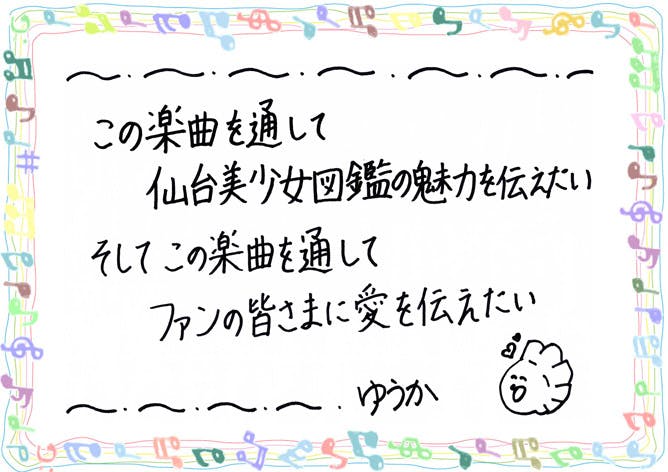 この楽曲を通して
仙台美少女図鑑の魅力を伝えたい
そしてこの楽曲を通して
ファンの皆さまに愛を伝えたい
ゆうか